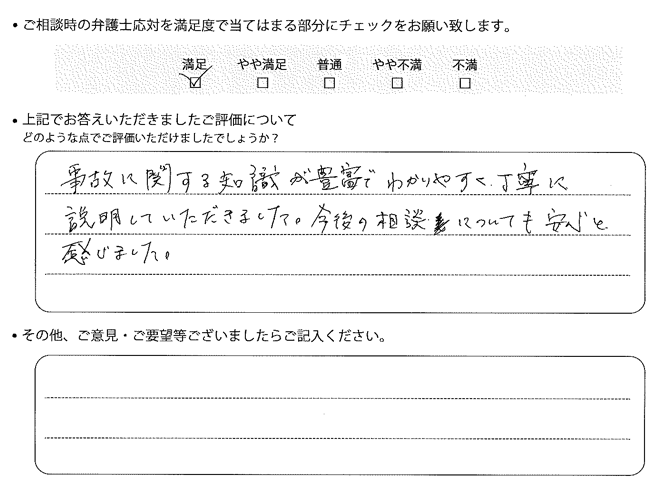 • ご相談時の弁護士応対を満足度で当てはまる部分にチェックをお願い致します。
満足 やや満足 普通 やや不満 不満
☑ □ □ □ □
• 上記でお答えいただきましたご評価について
どのような点でご評価いただけましたでしょうか？
事故に関する知識が豊富でわかりやすく、丁寧に
説明していただきました。今後の相談についても安心と
感じました。
• その他、ご意見・ご要望等ございましたらご記入ください。